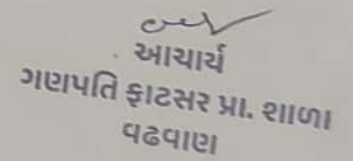 આચાર્ય
ગણપતિ ફાટસર પ્રા. શાળા
વઢવાણ